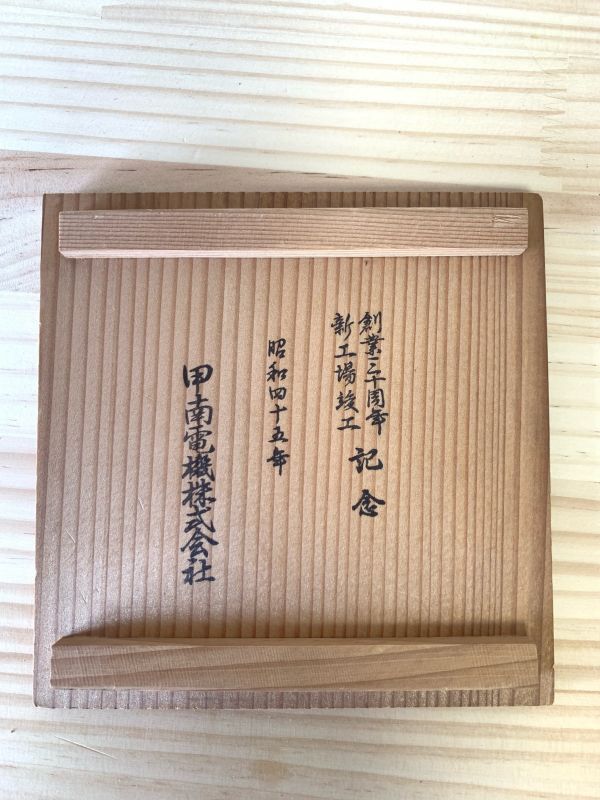 創業三十周年
新工場竣工
記念
昭和四十五年
甲南電機株式会社